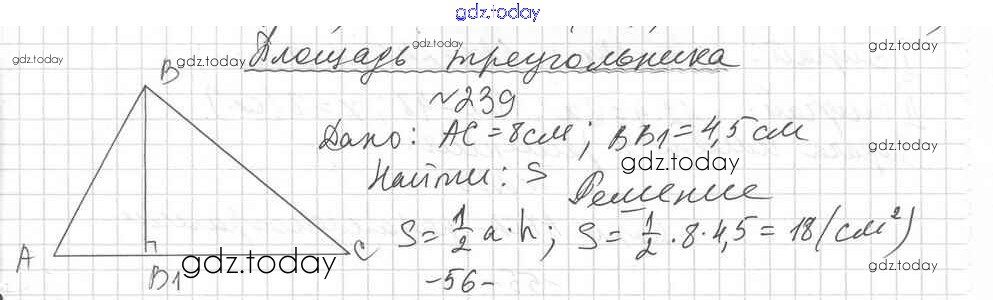 gdz.today
gdz.today gdz.today gdz.today gdz.today
Площадь треугольника
№239
Дано: AC = 8 см; BB1 = 4,5 см
gdz.today
Найти: S
Решение
S = 1/2 a·h; S = 1/2 · 8 · 4,5 = 18 (см²)
B
A
B1
C
gdz.today
gdz.today
-56-